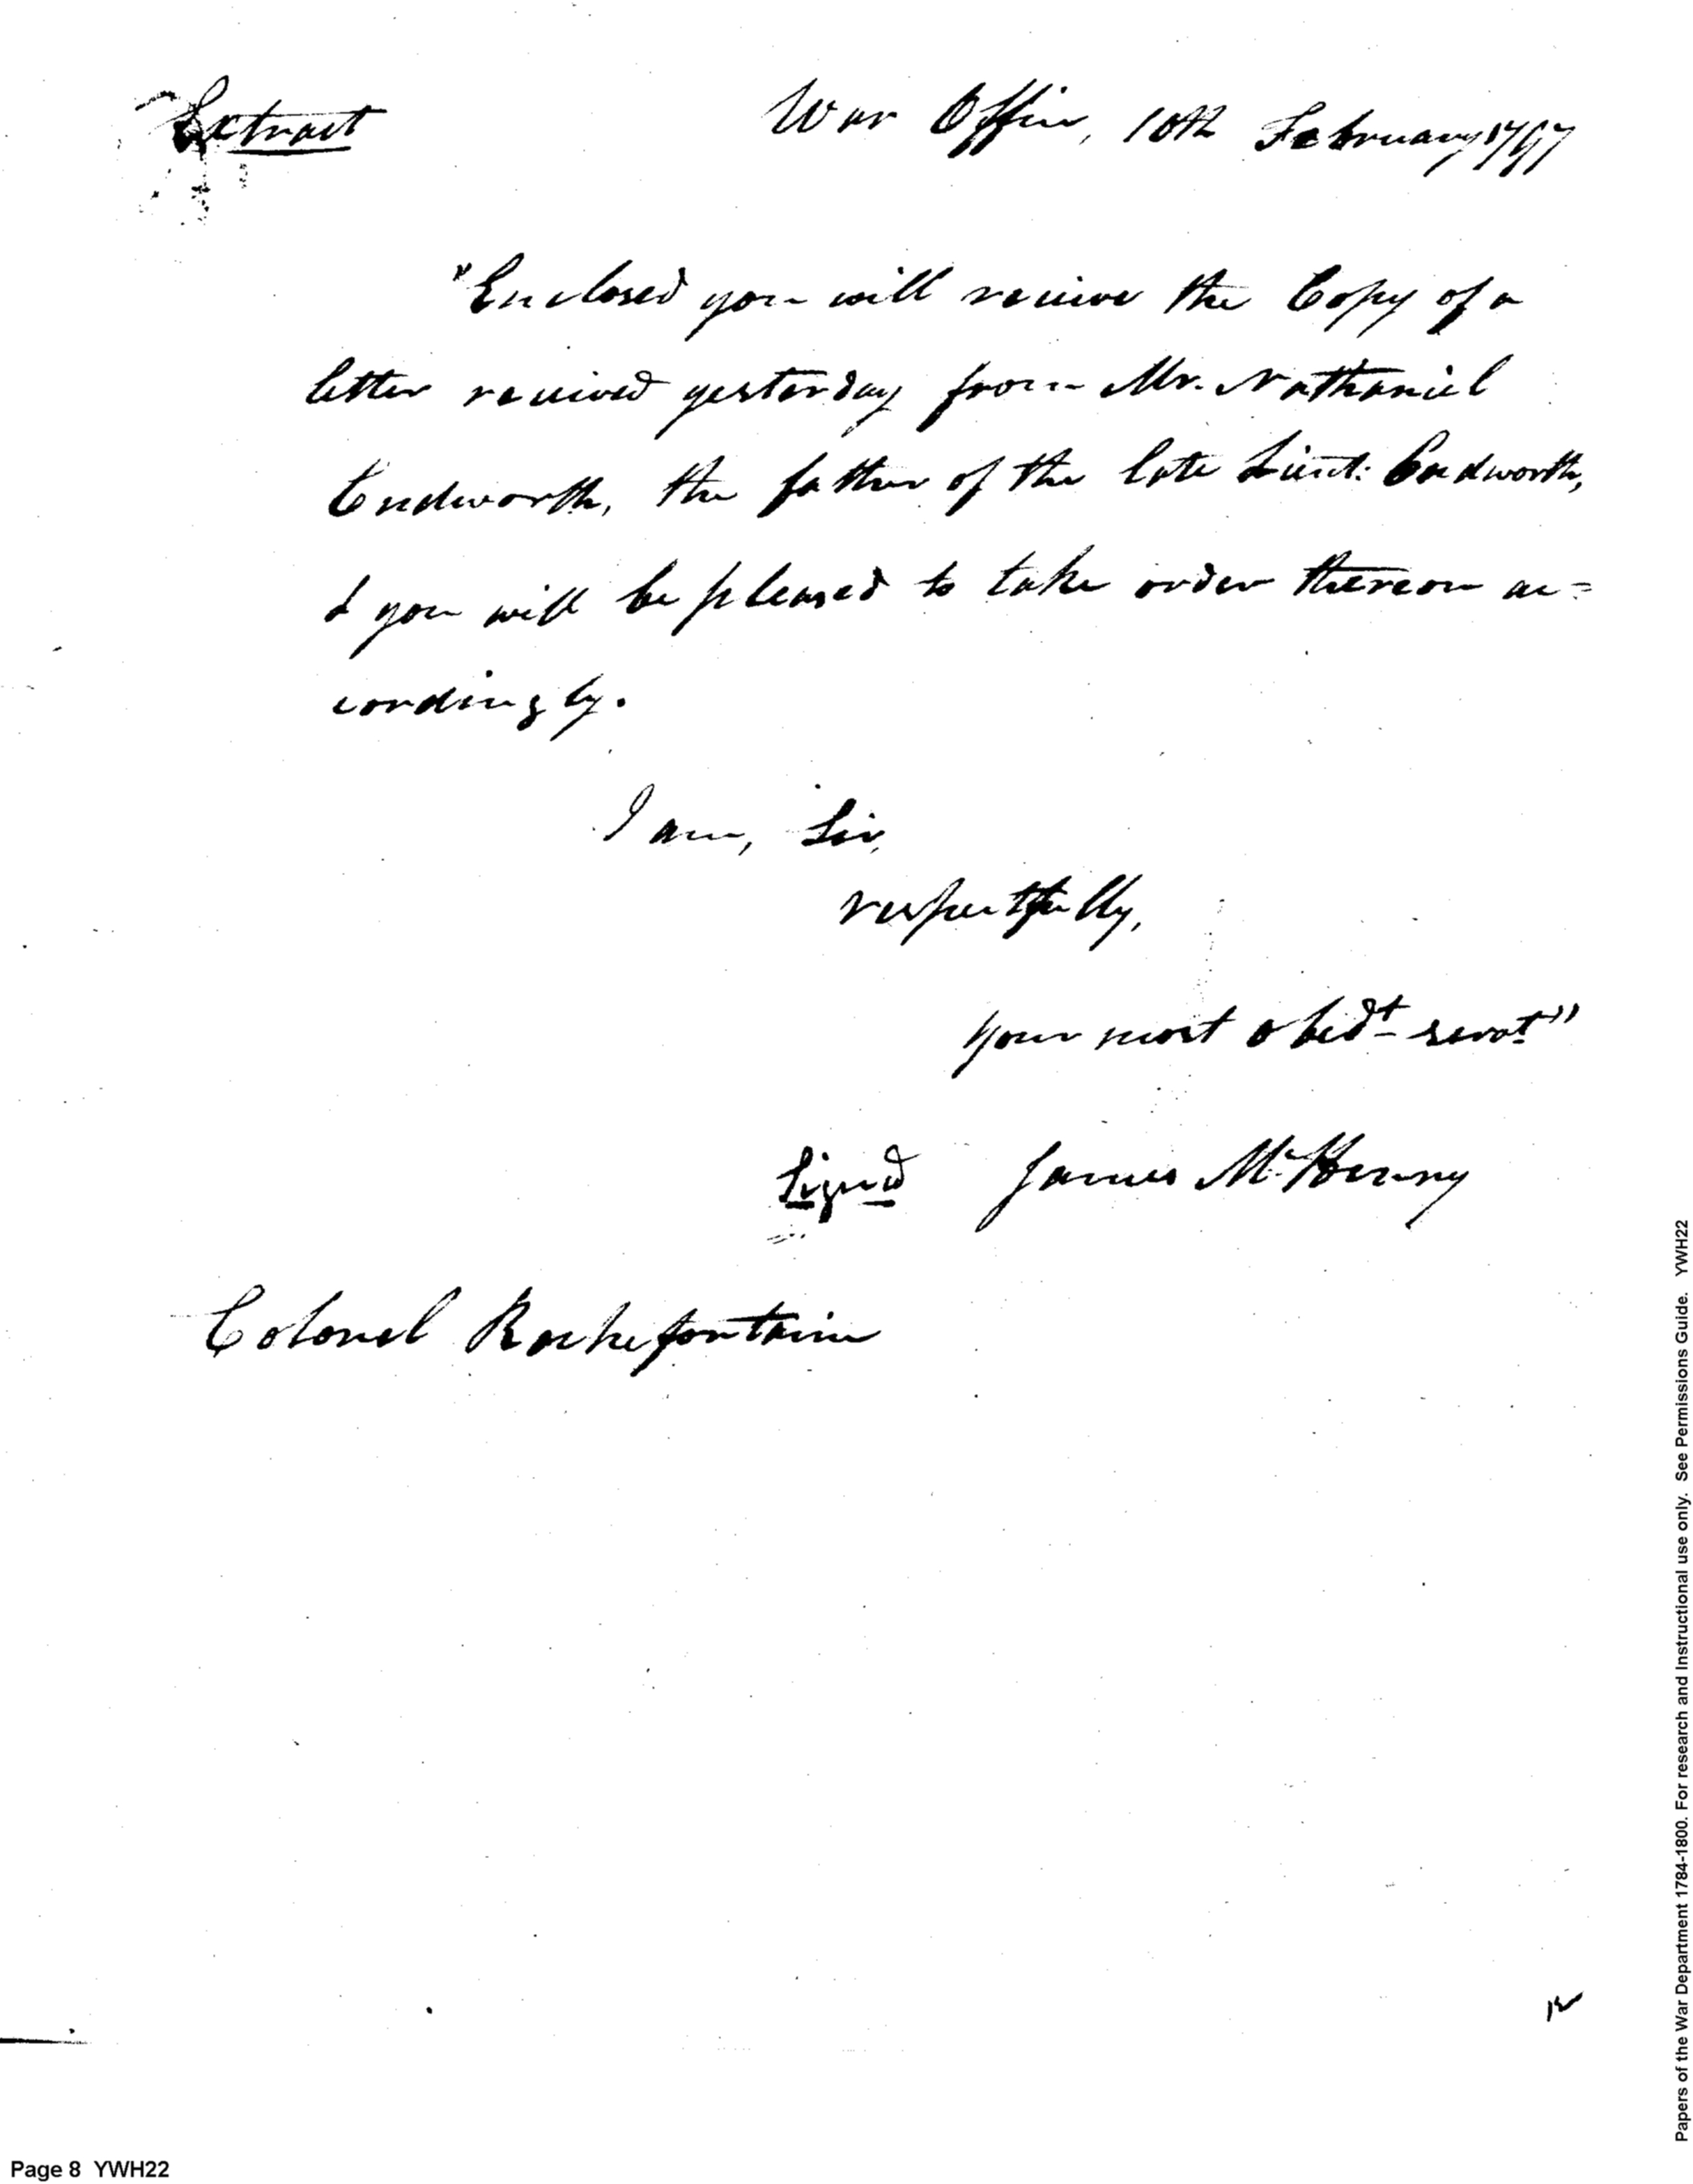 Extract
War Office, 10th February 1797
"Enclosed you will receive the Copy of a
letter received yesterday from Mr. Nathaniel
Cudworth, the father of the late Lieut: Cudworth,
& you will be pleased to take order thereon ac=
cordingly.
I am, Sir,
respectfully,
Your most obedt servt."
Signed James McHenry
Colonel Rochefontaine
Page 8 YWH22
Papers of the War Department 1784-1800. For research and Instructional use only. See Permissions Guide. YWH22